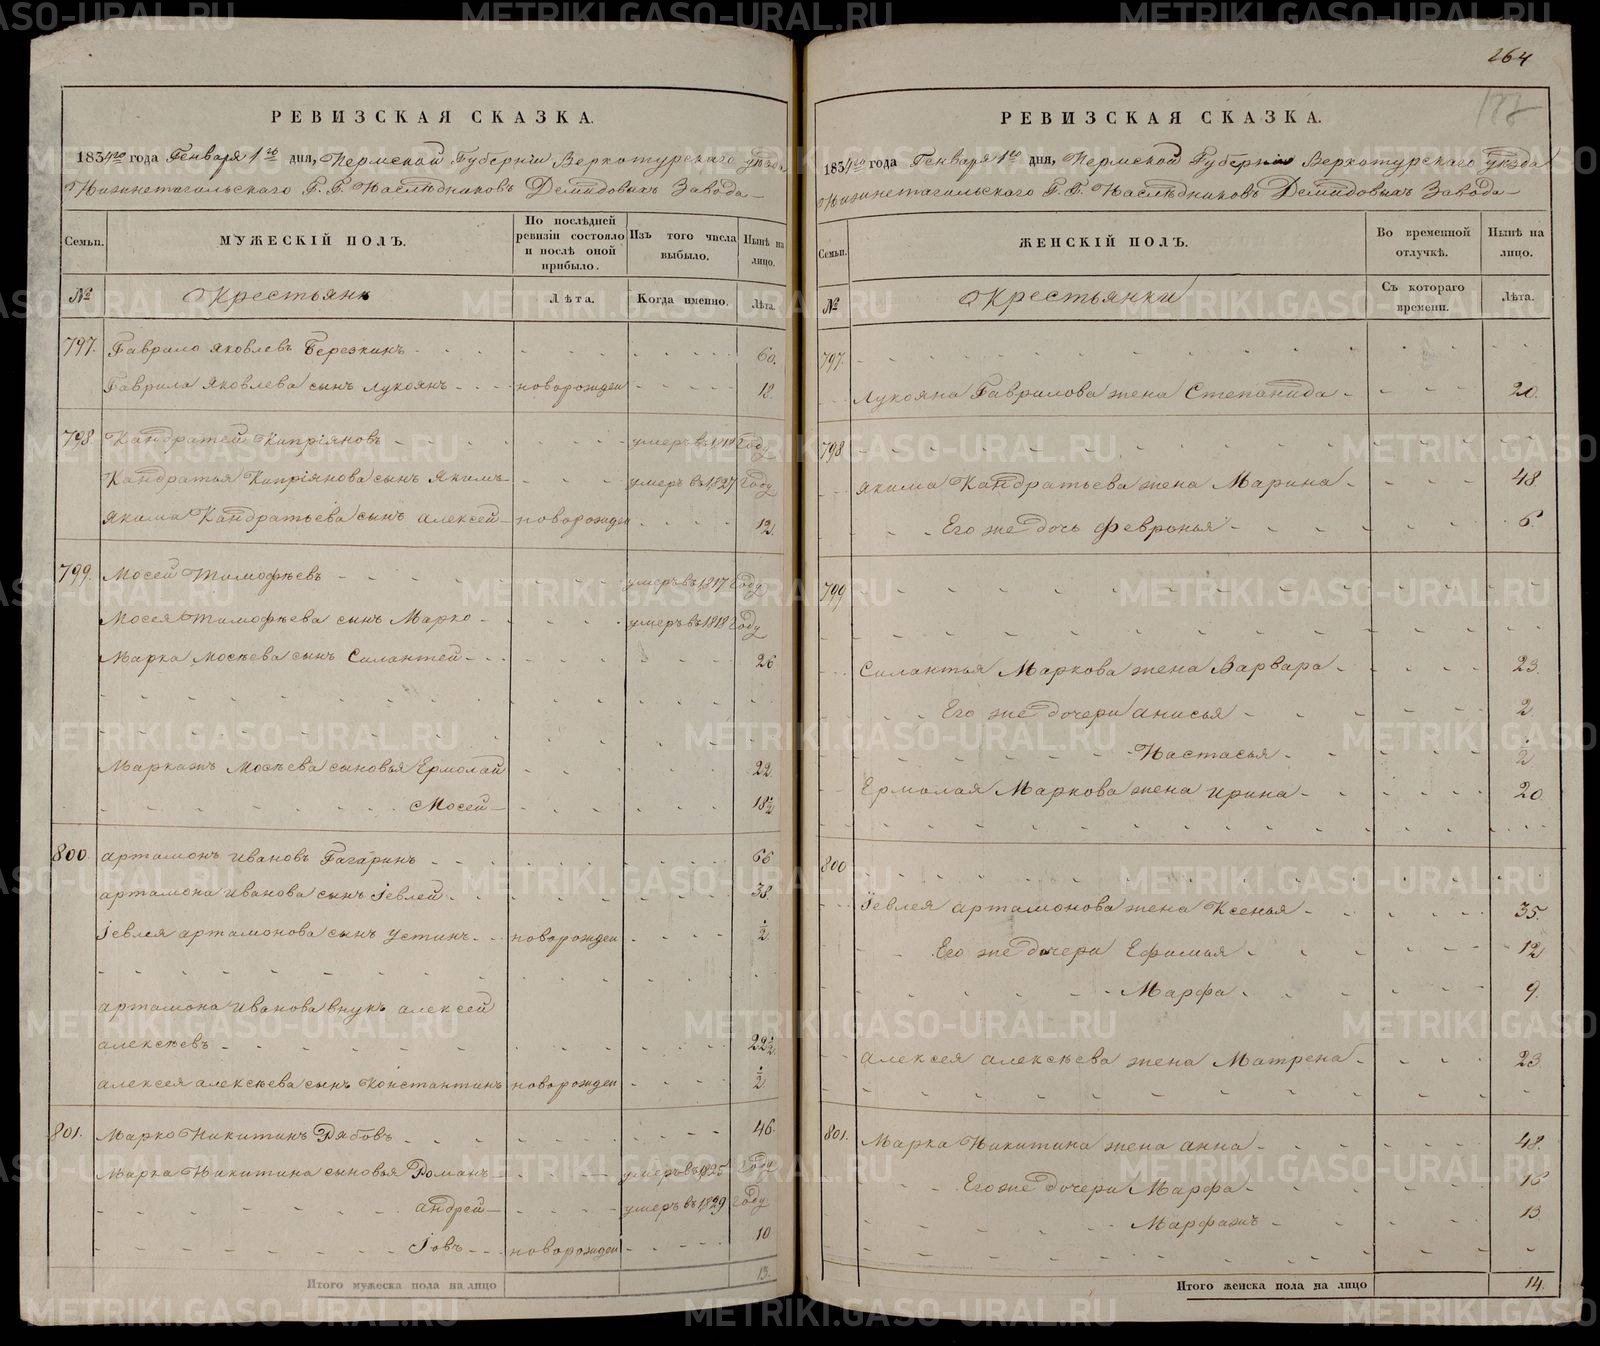 264
188
РЕВИЗСКАЯ СКАЗКА.
1834го года Генваря 1го дня, Пермской Губерніи Верхотурскаго уѣзда
Нижнетагильскаго Г.Г. Наслѣдниковъ Демидовыхъ Завода
Семьи.
МУЖЕСКІЙ ПОЛЪ.
По послѣдней ревизіи состояло и послѣ оной прибыло.
Изъ того числа выбыло.
Нынѣ на лицо.
№
Крестьяне
Лѣта.
Когда именно.
Лѣта.
797. Гаврило Яковлевъ Березкинъ 60.
Гаврила Яковлева сынъ Лукоянъ новорожден 18.
798 Кандратей Кипріяновъ умеръ в 1818 Году
Кандратья Кипріянова сынъ Якимъ умеръ въ 1827 Году
Якима Кандратьева сынъ Алексей новорожден 12
799. Мосей Тимофѣевъ умеръ въ 1817 Году
Мосея Тимофѣева сынъ Марко умеръ въ 1818 Году
Марка Мосѣева сынъ Силантей 26
Маркажъ Мосѣева сыновья Ермолай 22
Мосей 18½
800 Артамонъ Ивановъ Гагаринъ 66
Артамона Иванова сынъ Іевлей 38.
Іевлея Артамонова сынъ Устинъ новорожден ½
Артамона Иванова внукъ Алексей
Алексѣевъ 22½
Алексея Алексѣева сынъ Константинъ новорожден ½
801. Марко Никитинъ Рябовъ 46.
Марка Никитина сыновья Романъ умеръ въ 1825 Году
Андрей умеръ въ 1829 Году
Іовъ новорожден 10
Итого мужеска пола на лицо 13.
РЕВИЗСКАЯ СКАЗКА.
1834го года Генваря 1го дня, Пермской Губерніи Верхотурскаго уѣзда
Нижнетагильскаго Г.Г. Наслѣдниковъ Демидовыхъ Завода
Семьи.
ЖЕНСКІЙ ПОЛЪ.
Во временной отлучкѣ.
Нынѣ на лицо.
№
Крестьянки
Съ котораго времени.
Лѣта.
797.
Лукояна Гаврилова жена Степанида 20.
798
Якима Кандратьева жена Марина 48
Его же дочь Февронья 6.
799
Силантья Маркова жена Варвара 23.
Его же дочери Анисья 2
Настасья ½
Ермолая Маркова жена Ирина 20.
800
Іевлея Артамонова жена Ксенья 35.
Его же дочери Ефимья 12
Марфа 9.
Алексея Алексѣева жена Матрена 23
801. Марка Никитина жена Анна 48.
Его же дочери Марфа 16
Марфажъ 13
Итого женска пола на лицо 14.
METRIKI.GASO-URAL.RU